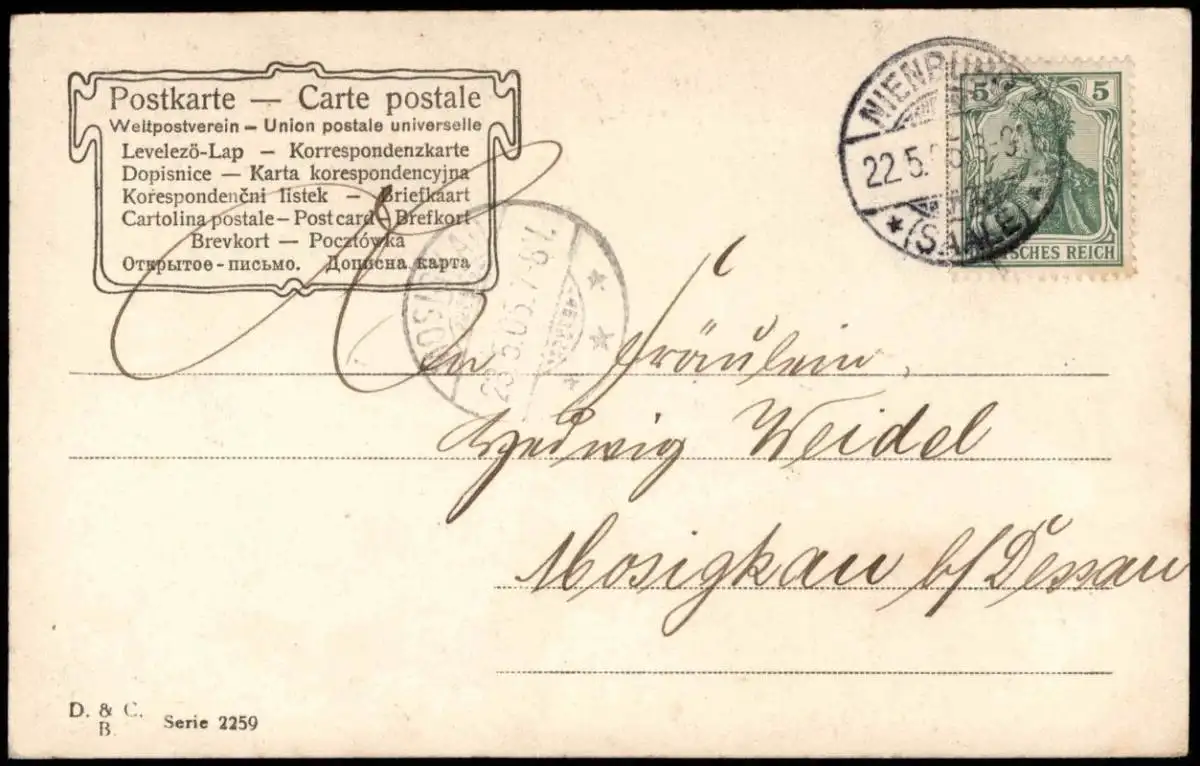 Postkarte — Carte postale
Weltpostverein – Union postale universelle
Levelező-Lap – Korrespondenzkarte
Dopisnice – Karta korespondencyjna
Korespondenčni listek – Briefkaart
Cartolina postale – Post card – Brefkort
Brevkort — Pocztówka
Открытое-письмо. Дописна карта
NIENBURG
22.5.
(SAALE)
5 5
DEUTSCHES REICH
MOSIGKAU
23.5.06.7-8V.
An Fräulein
Hedwig Weidel
Mosigkau b/Dessau
D. & C.
B.
Serie 2259